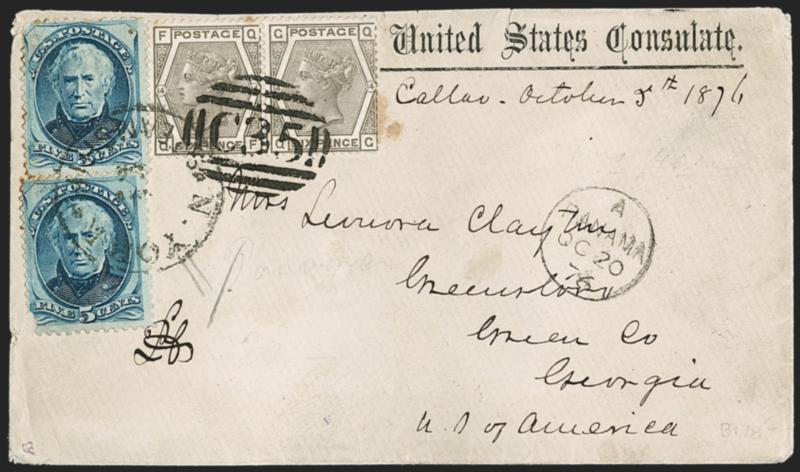 U.S. POSTAGE
FIVE 5 CENTS
U.S. POSTAGE
FIVE 5 CENTS
F POSTAGE Q
14 14
Q PENCE F
G POSTAGE Q
14 14
Q SIX PENCE G
C35
United States Consulate.
Callao - October 5th 1876
Mrs Leonora Clayton
Greensboro
Green Co
Georgia
U. S of America
A
PANAMA
OC 20
76
N. YOR